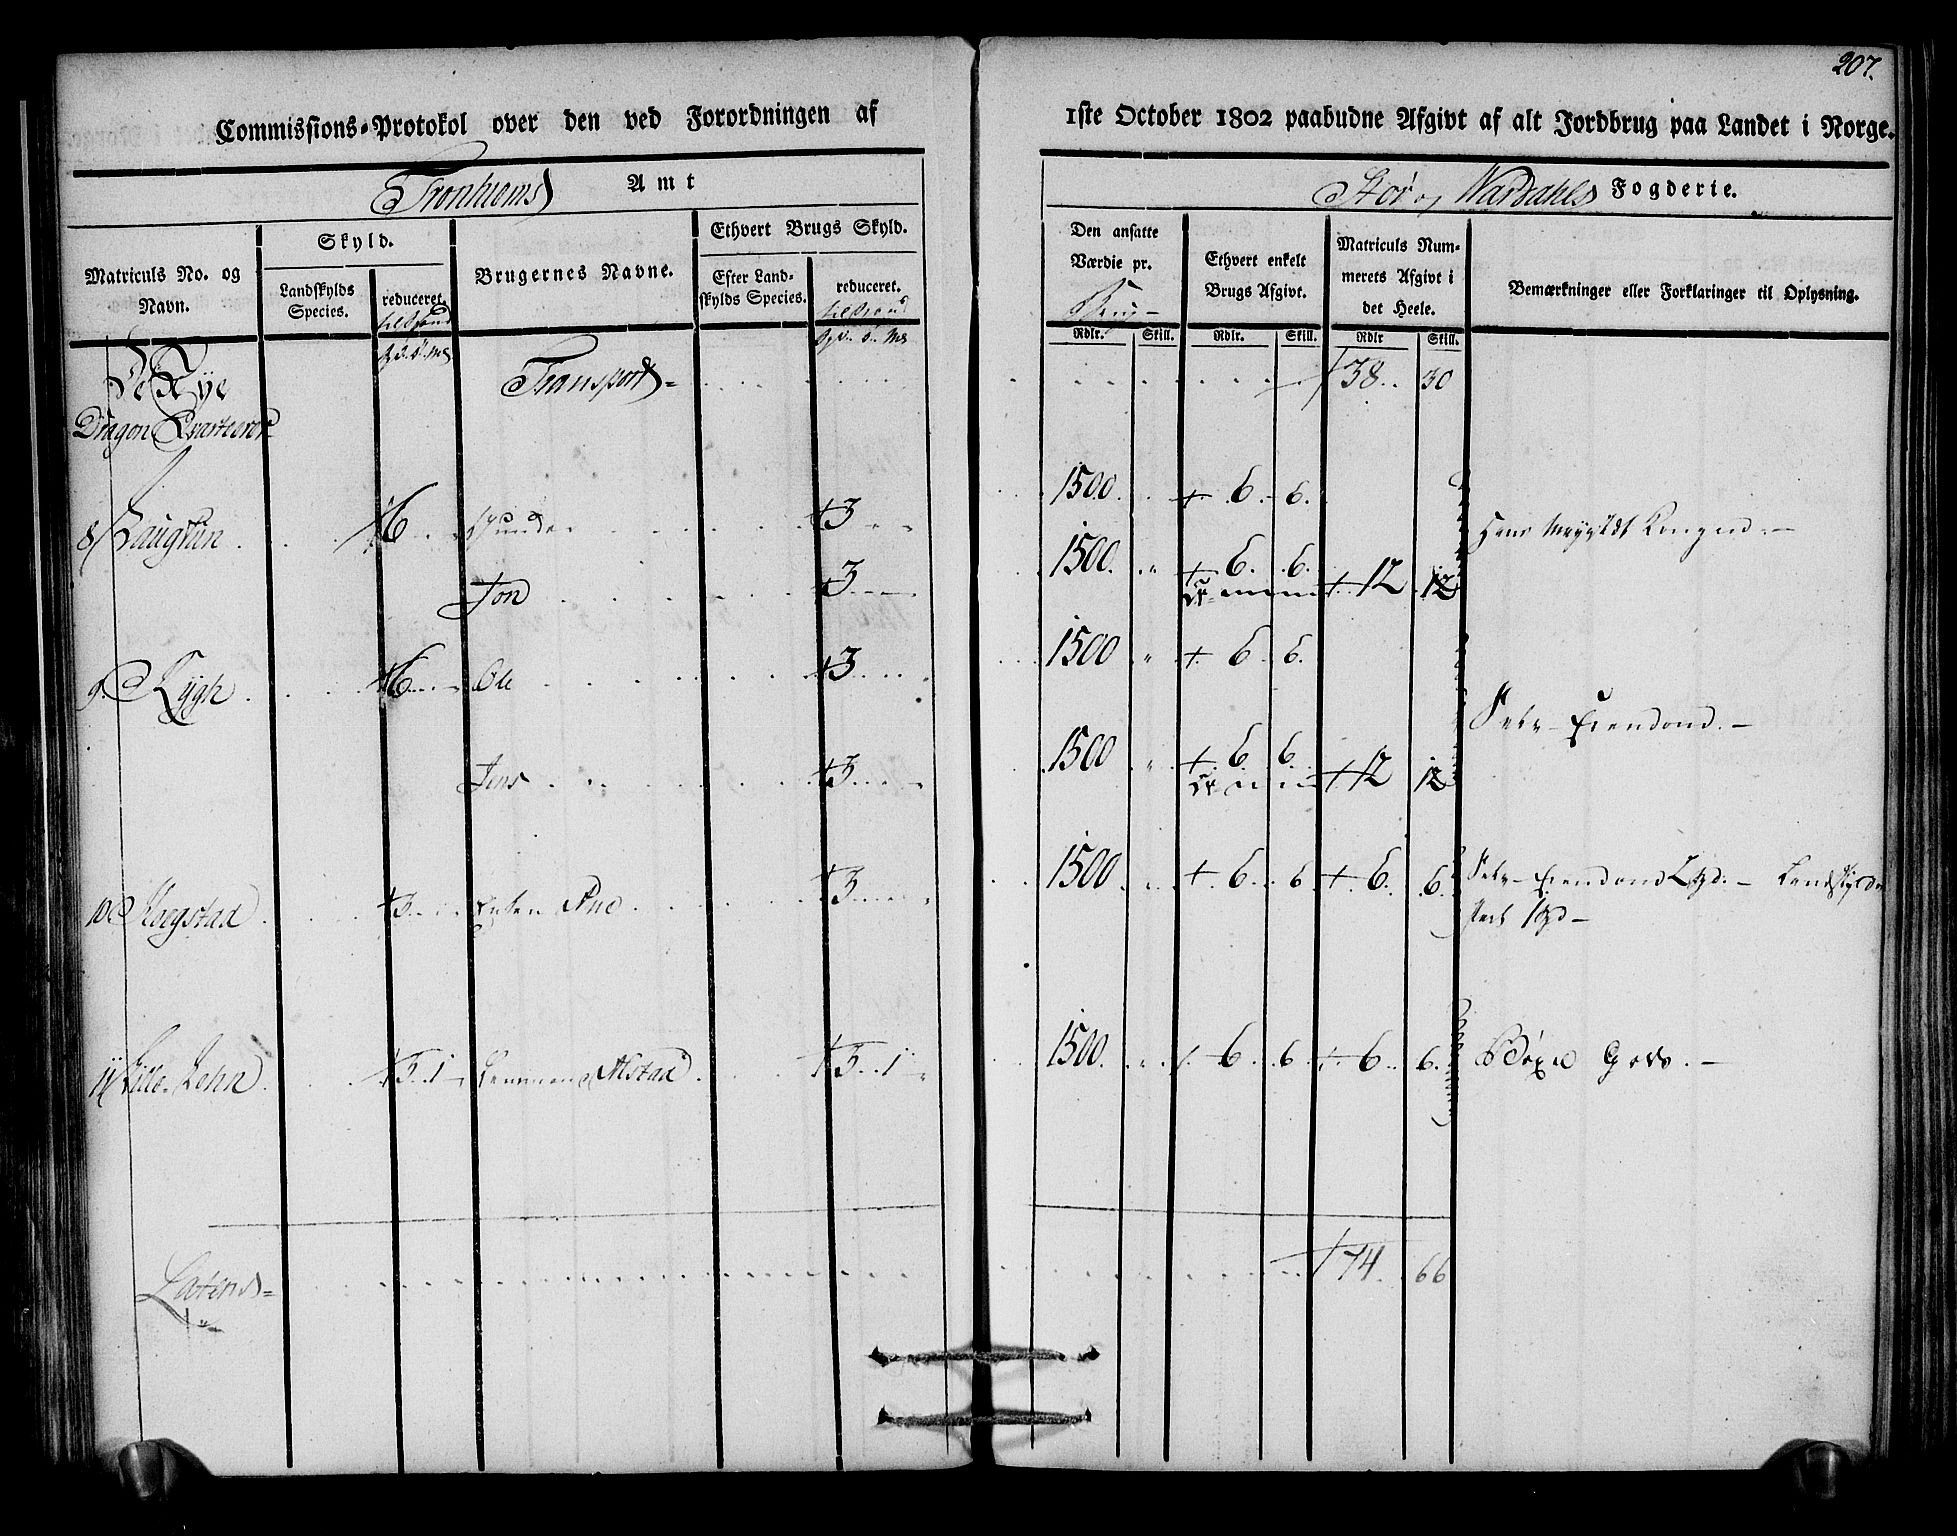 207.
Commissions-Protokol over den ved Forordningen af 1ste October 1802 paabudne Afgivt af alt Jordbrug paa Landet i Norge.
Tronhiems Amt
Stør og Wærdahls Fogderie.
Matriculs No. og Navn.
Skyld.
Landskylds Species.
reduceret.
Brugernes Navne.
Ethvert Brugs Skyld.
Efter Landskylds Species.
reduceret.
Den ansatte Værdie pr. Brug
Rdlr. Skill.
Ethvert enkelt Brugs Afgivt.
Rdlr. Skill.
Matriculs Nummerets Afgivt i det Heele.
Rdlr Skill.
Bemærkninger eller Forklaringer til Oplysning.
Transport = 38 30
Dragon Qvarterer
8 Haugsün 6 3 1500 6 6
Jon 3 1500 6 6 12 12
9 6 Ole 3 1500 6 6
Jens 3 1500 6 6 12 12
10 3 Enken 3 1500 6 6 6 6
11 Lille 3 1 3 1 1500 6 6 6 6 Gods
Laterus = 74 66